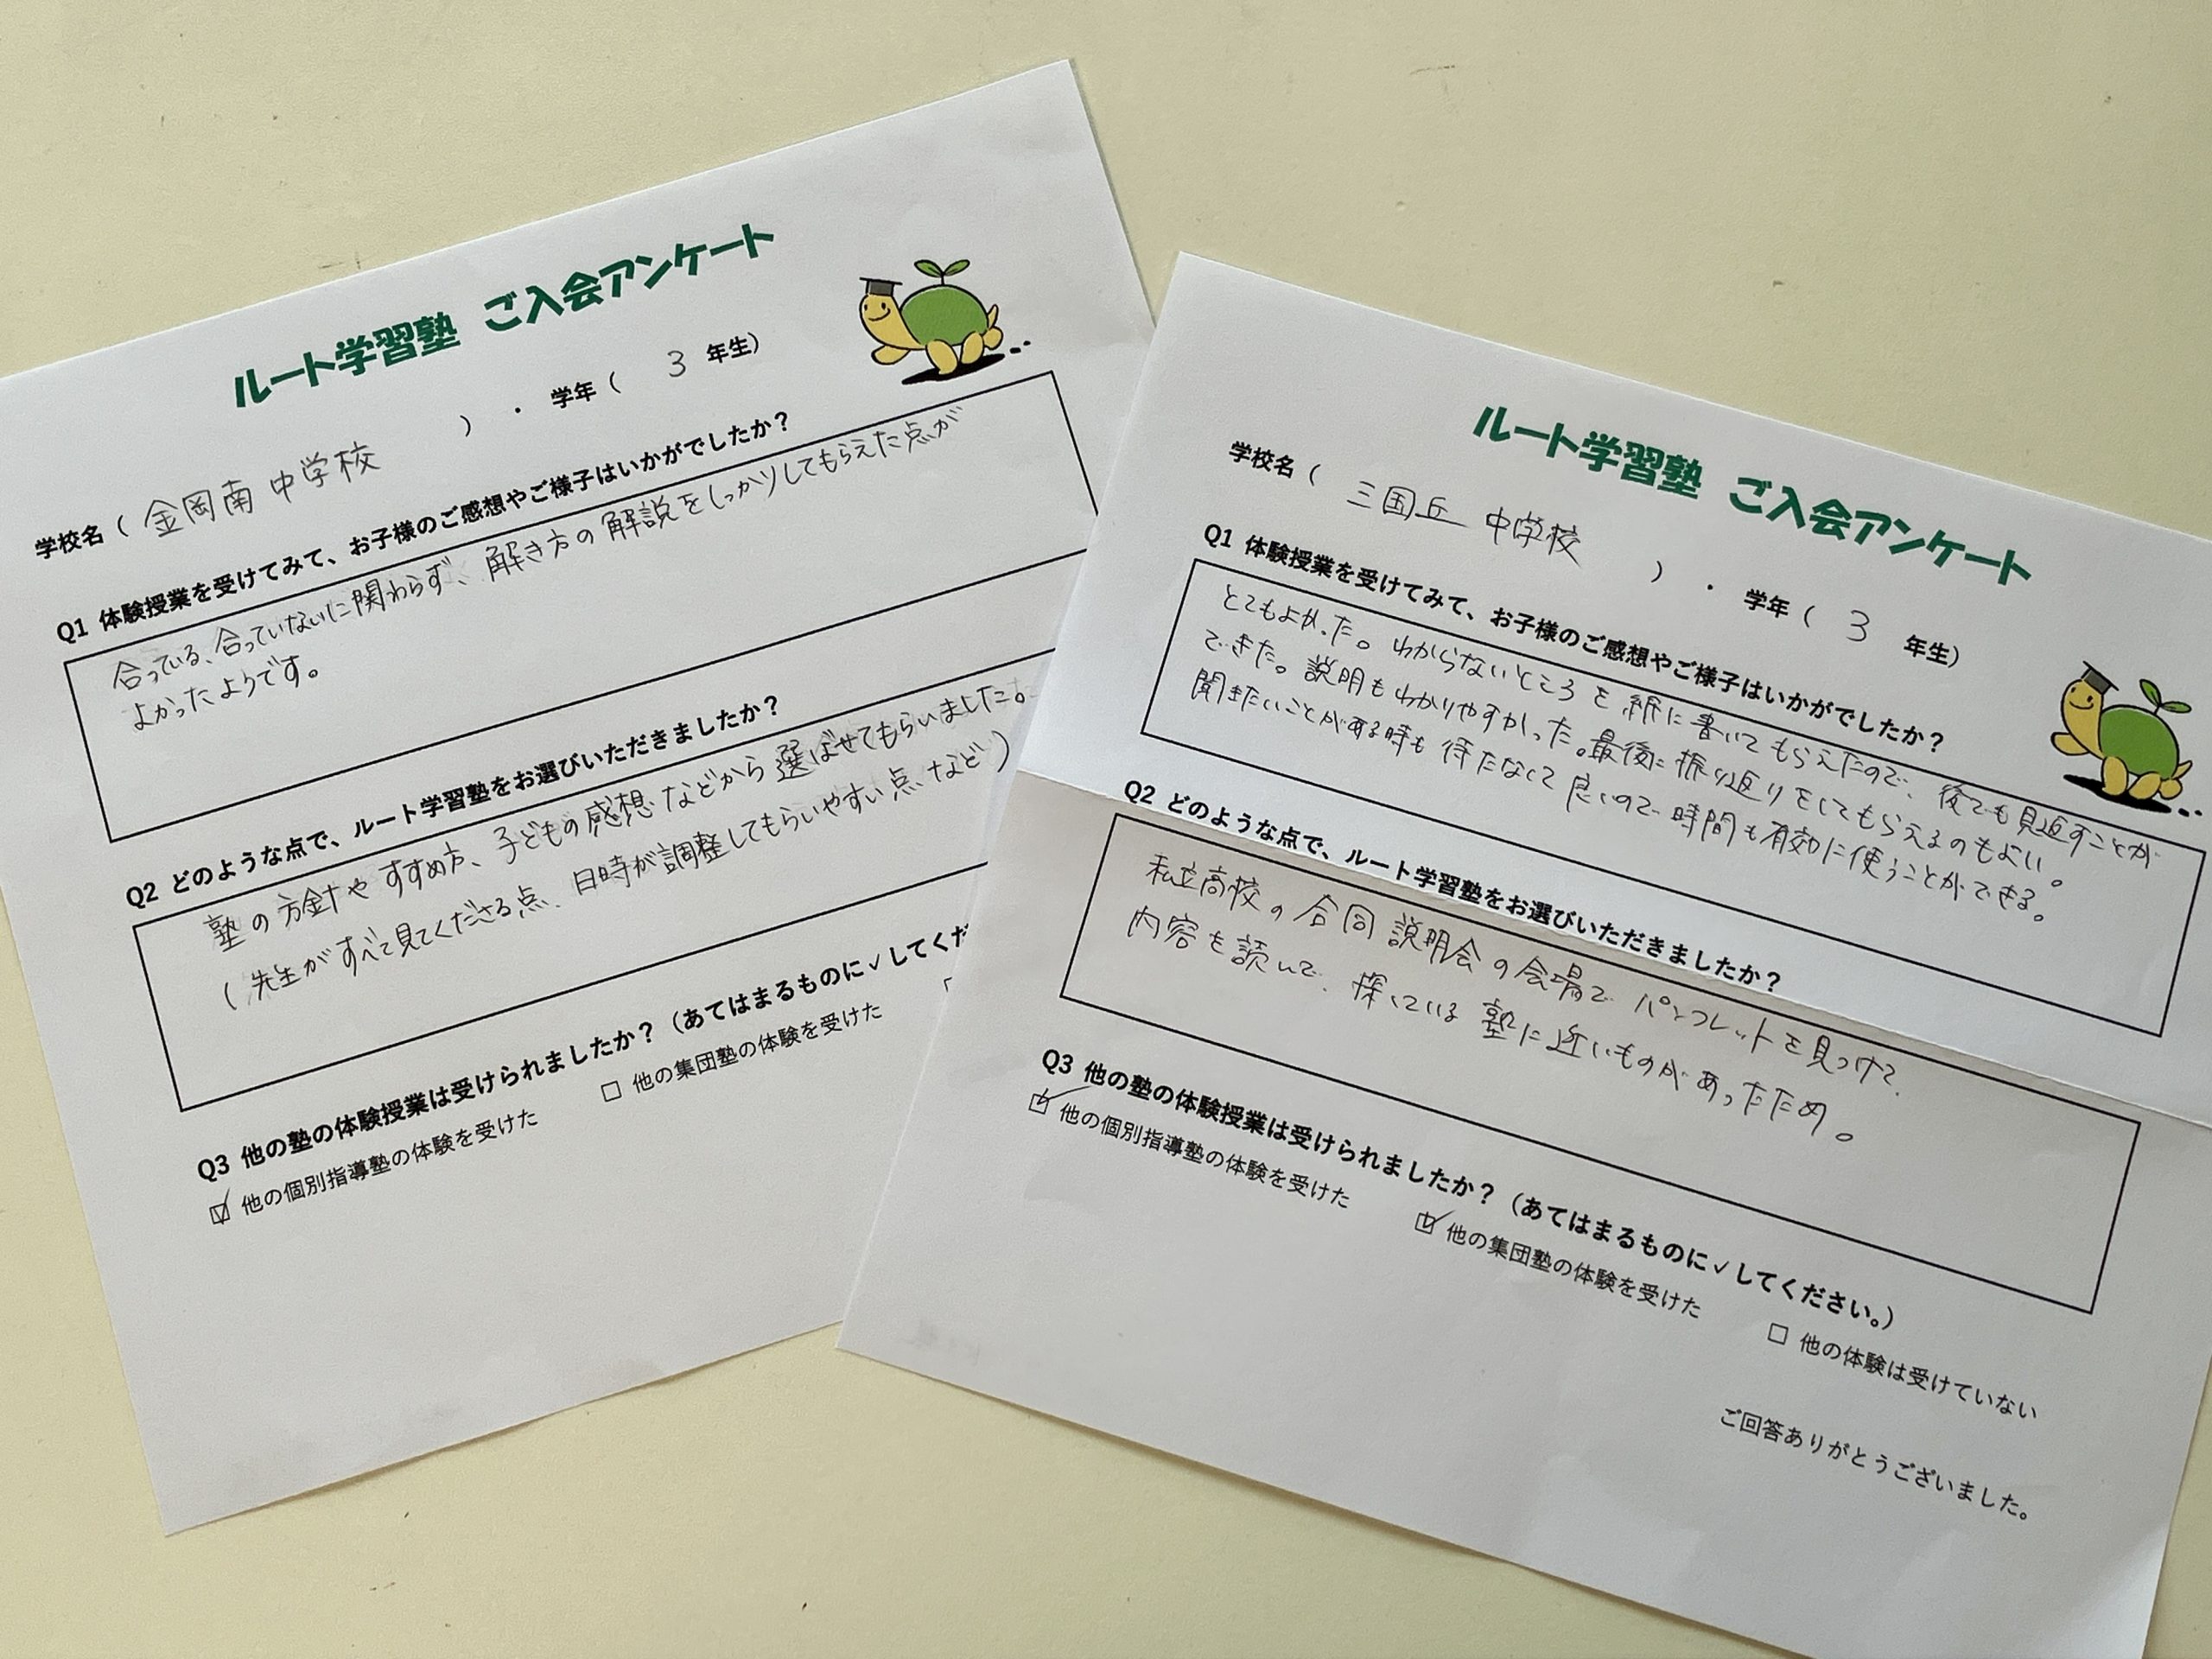 ルート学習塾 ご入会アンケート
学校名（ 金岡南 中学校 ）・ 学年（ 3 年生）
Q1 体験授業を受けてみて、お子様のご感想やご様子はいかがでしたか？
合っている、合っていないに関わらず、解き方の解説をしっかりしてもらえた点が
よかったようです。
Q2 どのような点で、ルート学習塾をお選びいただきましたか？
塾の方針やすすめ方、子どもの感想などから選ばせてもらいました。
（先生がすべて見てくださる点、日時が調整してもらいやすい点、など）
Q3 他の塾の体験授業は受けられましたか？（あてはまるものに✓してくだ
☑ 他の個別指導塾の体験を受けた □ 他の集団塾の体験を受けた
ルート学習塾 ご入会アンケート
学校名（ 三国丘 中学校 ）・ 学年（ 3 年生）
Q1 体験授業を受けてみて、お子様のご感想やご様子はいかがでしたか？
とてもよかった。わからないところを紙に書いてもらえたので、後でも見返すことが
できた。説明もわかりやすかった。最後に振り返りをしてもらえるのもよい。
聞きたいことがある時も待たなくて良いので時間も有効に使うことができる。
Q2 どのような点で、ルート学習塾をお選びいただきましたか？
私立高校の合同説明会の会場でパンフレットを見つけて、
内容を読んで、探している塾に近いものがあったため。
Q3 他の塾の体験授業は受けられましたか？（あてはまるものに✓してください。）
☑ 他の個別指導塾の体験を受けた ☑ 他の集団塾の体験を受けた □ 他の体験は受けていない
ご回答ありがとうございました。